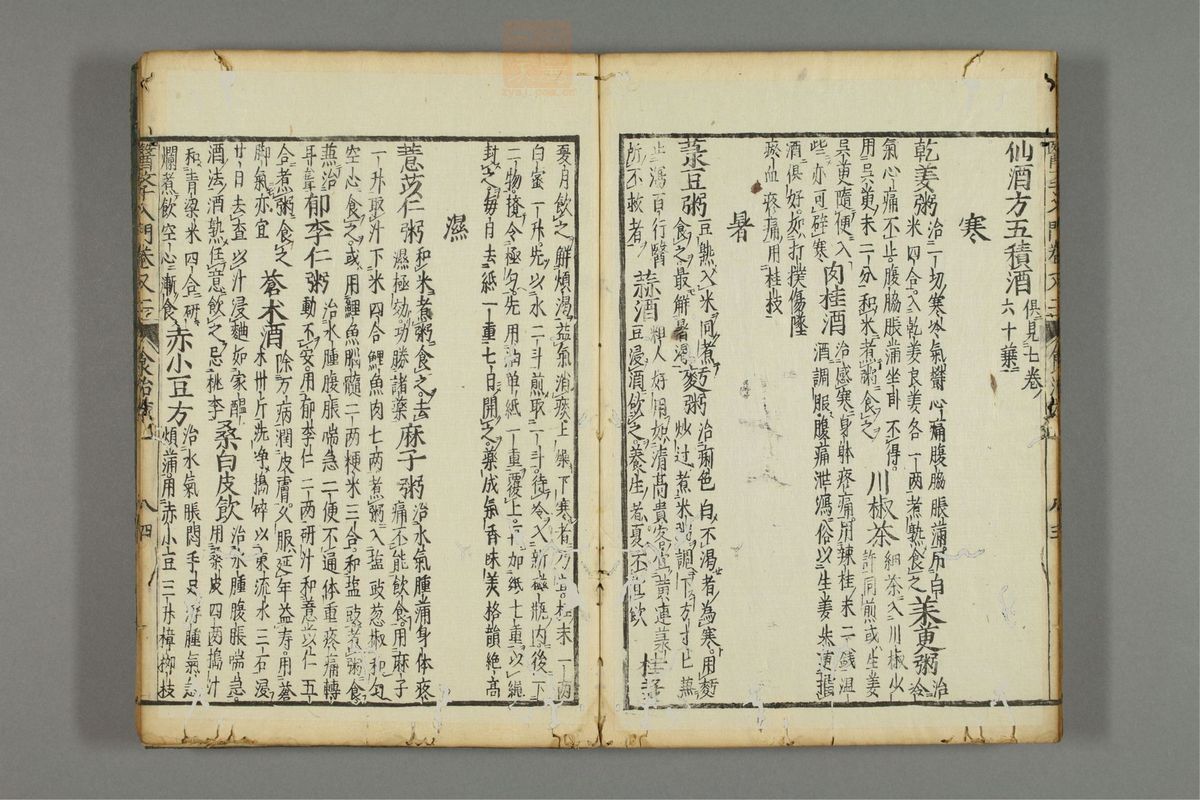 仙酒方五積酒 俱見七卷
六十葉
寒
乾姜粥 治一切寒冷氣鬱心痛腹脇脹滿用白
米四合入乾姜良姜各一兩煮熟食之 茱萸粥 治冷
氣心痛不止腹脇脹滿坐卧不得
用吳萸末二分和米煮粥食之 川椒茶 細茶入川椒少
許同煎或生姜
吳萸隨便入
些亦可辟寒 肉桂酒 治感寒身體疼痛用辣桂末二錢温
酒調服腹痛泄瀉俗以生姜吳萸擂
酒俱好如打撲傷墜
瘀血疼痛用桂枝
暑
菉豆粥 豆熟入米同煮
食之最解暑渴 麪粥 治痢色白不渴者為寒用麪
炒过煮米粥調下方寸匕兼
瀉百行醫
所不救者 蒜酒 粗人好用如清高貴客宜黃連菉
豆浸酒飲之養生者夏不宜飲 桂漿
夏月飲之解煩渴益氣消痰上燥下寒者乃宜桂末一兩
白蜜一升先以水二斗煎取一斗待冷入新磁瓶内後下
二物攪令極匀先用油单紙一重覆上加紙七重以繩
封之每日去紙一重七日開之藥成氣香味美格韻絶高
濕
薏苡仁粥 和米煮粥食之去
濕極効功勝諸藥 麻子粥 治水氣腫滿身体疼
痛不能飲食用麻子
一升取汁下米四合鯉魚肉七兩煮粥入盐豉葱椒和匀
空心食之或用鯉魚腦髓二兩粳米三合和盐豉煮粥食
兼治
耳聾 郁李仁粥 治水腫腹脹喘急二便不通体重疼痛轉
動不安用郁李仁二兩研汁和薏苡仁五
合煮粥食之
脚氣亦宜 蒼术酒 除万病潤皮膚久服延年益寿用蒼
术卅斤洗净搗碎以東流水三石浸
廿日去查以汁浸麯如家醞
酒法酒熟任意飲之忌桃李 桑白皮飲 治水腫腹脹喘急
用桑皮四兩搗汁
和青粱米四合研
爛煮飲空心漸食 赤小豆方 治水氣脹悶手足浮腫氣急
煩滿用赤小豆三升樟柳枝
醫學入門卷又二 食治 八四